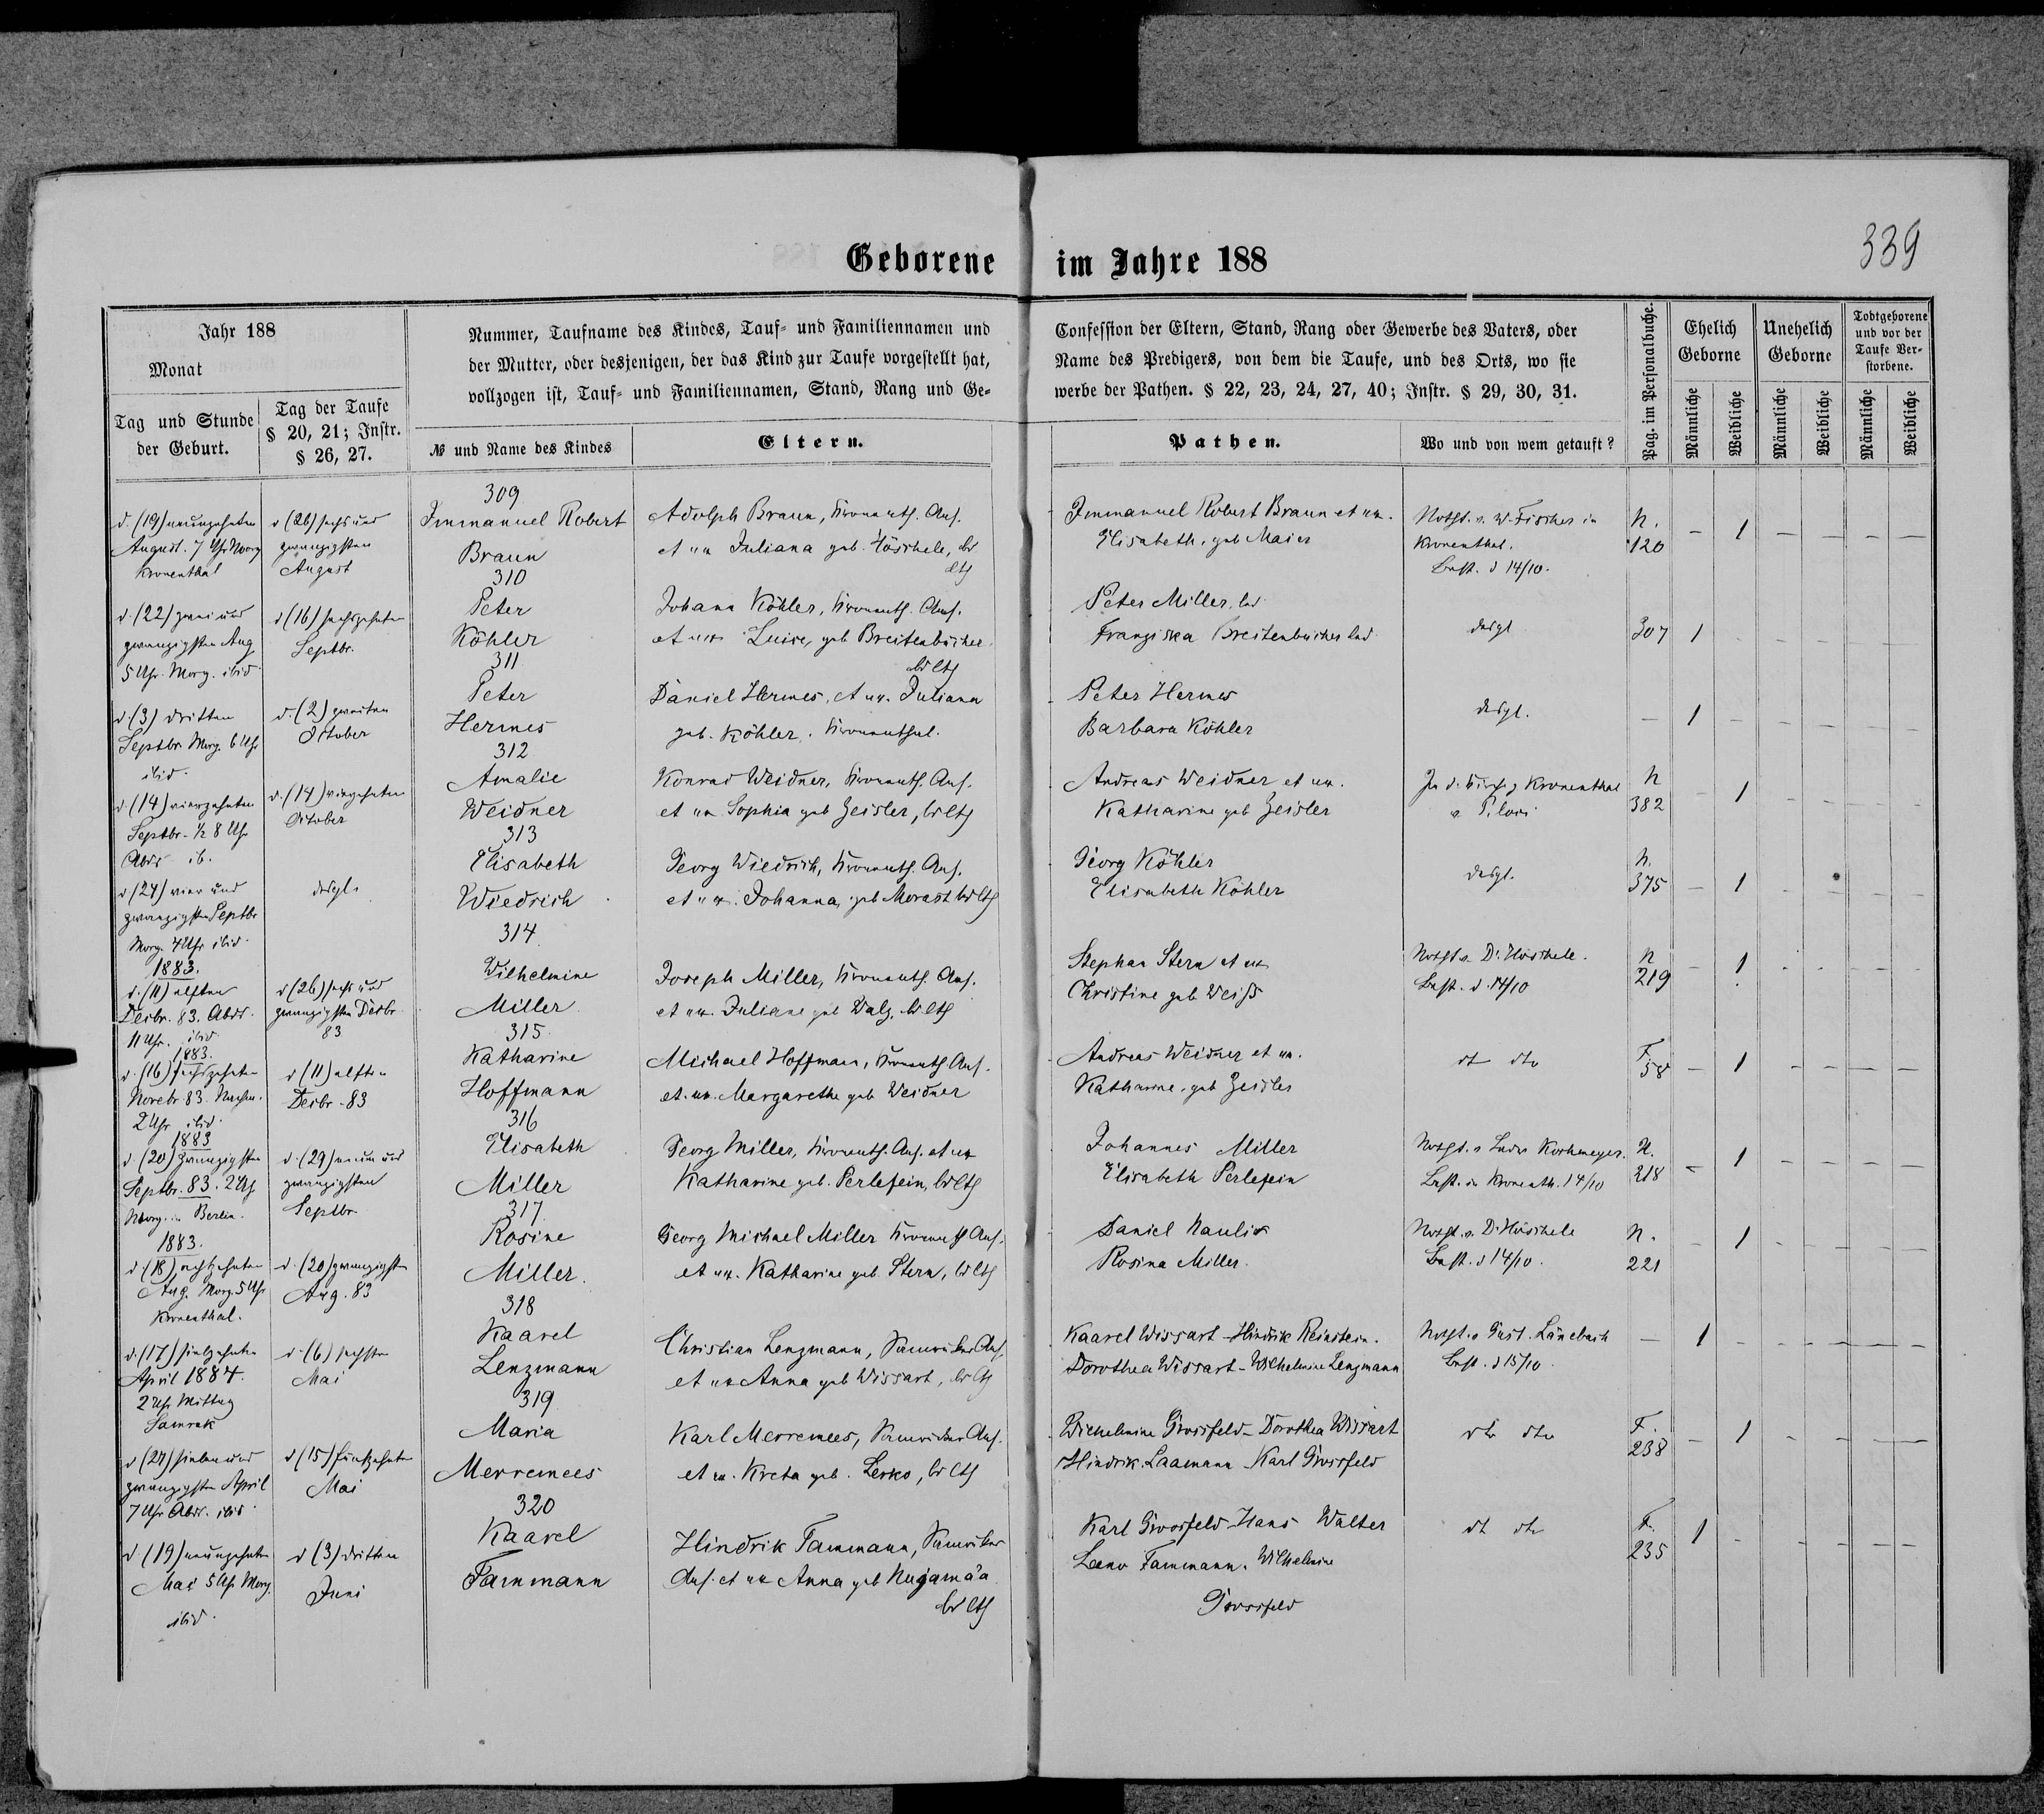 339
Geborene im Jahre 188
Jahr 188
Monat
Tag und Stunde der Geburt.
Tag der Taufe § 20, 21; Instr. § 26, 27.
Nummer, Taufname des Kindes, Tauf- und Familiennamen und
der Mutter, oder desjenigen, der das Kind zur Taufe vorgestellt hat,
vollzogen ist, Tauf- und Familiennamen, Stand, Rang und Ge-
№ und Name des Kindes
Eltern.
Confession der Eltern, Stand, Rang oder Gewerbe des Vaters, oder
Name des Predigers, von dem die Taufe, und des Orts, wo sie
werbe der Pathen. § 22, 23, 24, 27, 40; Instr. § 29, 30, 31.
Pathen.
Wo und von wem getauft?
Pag. im Personalbuche.
Ehelich Geborne
Unehelich Geborne
Todtgeborene und vor der Taufe Verstorbene.
Männliche Weibliche Männliche Weibliche Männliche Weibliche
309
d. (19) neunzehnten d (26) sechs und Immanuel Robert Adolph Braun, Kronenth. Ans. Immanuel Robert Braun et ux. Notgt. v. W. Fischer in N.
August. 7 Uhr Morg zwanzigsten Braun et ux Juliana geb. Höschele, bd Elisabeth, geb Maier Kronenthal. 120 – 1 – – – –
Kronenthal August lth Best. d 14/10.
310
d. (22) zwei und d (16) sechszehnten Peter Johann Köhler, Kronenth. Ans. Peter Miller, led
zwanzigsten Aug Septbr. Köhler et ux Luise, geb Breitenbücher Franziska Breitenbücher led desgl 307 1
5 Uhr Morg. ibid bd lth
311
d. (3) dritten d. (2) zweiten Peter Daniel Hermes, et ux. Juliana Peter Hermes
Septbr. Morg. 6 Uhr October Hermes geb. Köhler. Kronenthal. Barbara Köhler desgl. – 1
ibid.
312
d. (14) vierzehnten d. (14) vierzehnten Amalie Konrad Weidner, Kronenth. Ans. Andreas Weidner et ux. In d. Kirche z Kronenthal N
Septbr. ½ 8 Uhr October Weidner et ux Sophia geb Zeisler, bd lth Katharine geb Zeisler 382 – 1
Abds ib.
313
d (24) vier und desgl. Elisabeth Georg Wiedrich, Kronenth. Ans. Georg Köhler N.
zwanzigsten Septbr Wiedrich et ux. Johanna, geb Morast bd lth Elisabeth Köhler desgl. 375 – 1
Morg. 4 Uhr ibid.
314
1883.
d. (11) elften d (26) sechs und Wilhelmine Joseph Miller, Kronenth. Ans. Stephan Stern et ux Notgt v. D. Höschele. N
Decbr. 83. Abds. zwanzigsten Decbr Miller et ux. Juliane geb Walz, bd lth Christine geb Weiß Best. d. 14/10 219 – 1
11 Uhr. ibid 83
315
1883.
d. (16) sechszehnten d (11) elften Katharine Michael Hoffmann, Kronenth Ans. Andreas Weidner et ux. dt dto F
Novebr 83. Nachm. Decbr. 83 Hoffmann et. ux. Margarethe geb Weidner Katharine, geb Zeisler 58 – 1
2 Uhr ibid.
316
1883
d. (20) zwanzigsten d. (29) neun und Elisabeth Georg Miller, Kronenth. Ans. et ux Johannes Miller N.
Septbr. 83. 2 Uhr zwanzigsten Miller Katharine geb. Perlefein, bd lth Elisabeth Perlefein Best. in Kronenth. 14/10 218 – 1
Morg. in Berlin. Septbr.
317
1883.
d (18) achtzehnten d. (20) zwanzigst Rosine Georg Michael Miller Kronenth Ans. Daniel Naulix Notgt. v. D. Höschele N.
Aug. Morg. 5 Uhr Aug. 83 Miller. et ux. Katharine geb. Stern, bd lth Rosina Miller. Best. d 14/10. 221 – 1
Kronenthal.
318
d. (17) siebzehnten d. (6) sechsten Kaarel Christian Lenzmann, Samruker Ans. Kaarel Wissart – Hindrik Reinstein. Notgt. v Gust. Länebach – 1
April 1884. Mai Lenzmann et ux Anna geb Wissart, bd lth Dorothea Wissart – Wilhelmine Lenzmann Best. d 15/10
2 Uhr Mittag
Samruk
319
d (27) sieben und d (15) fünfzehnten Maria Karl Merremees, Samruker Ans. Wilhelmine Grossfeld – Dorothea Wissart dto dto F.
zwanzigsten April Mai Merremees et ux. Kreta geb. Lesko, bd lth Hindrik Laamann Karl Grossfeld 238 – 1
7 Uhr Abds. ibid.
320
d (19) neunzehnten d (3) dritten Kaarel Hindrik Tammann, Samruker Karl Grossfeld Hans Walter dt dto F.
Mai 5 Uhr Morg. Juni Tammann Ans. et ux Anna geb Nugamäa Leno Tammann. Wilhelmine 235 1
ibid. bd lth Grossfeld